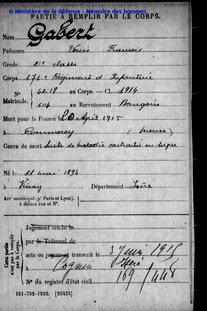 © Ministère de la défense - Mémoire des hommes
PARTIE À REMPLIR PAR LE CORPS.
Nom Gabert
Prénoms Louis François
Grade 2e classe
Corps Régiment d'Infanterie
N° Matricule. 4218 au Corps. — Cl 1914
604 au Recrutement Bourgoin
Mort pour la France le 20 Avril 1915
à Commercy (Meuse)
Genre de mort Suite de maladie contractée en
Né le 11 mai 1894
à Vinay Département Isère
Arr municipal (pr Paris et Lyon),
à défaut rue et N°.
Cette partie n'est pas à remplir par le Corps.
Jugement rendu le
par le Tribunal de
acte ou jugement transcrit le 1915
à
N° du registre d'état civil
101-708-1922. [26434]